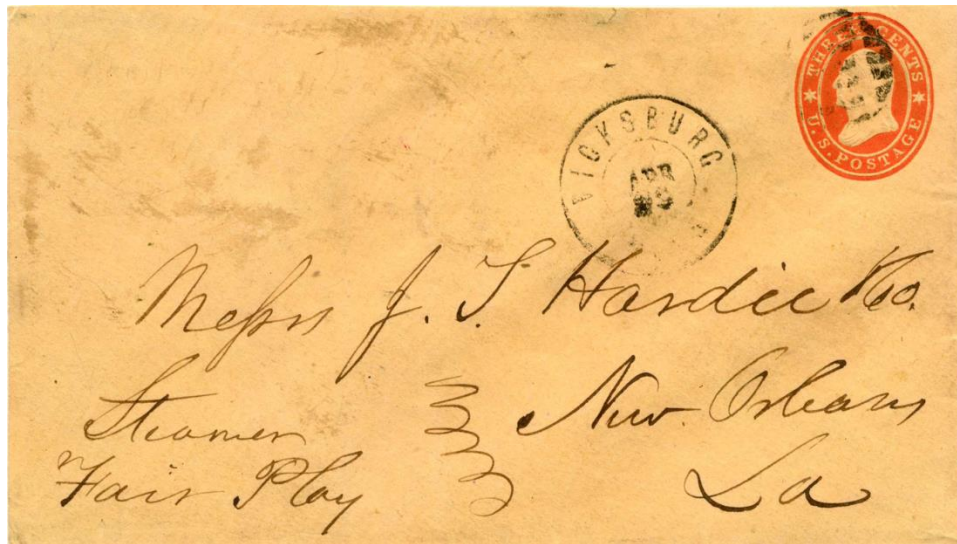 THREE CENTS
U.S. POSTAGE
VICKSBURG
APR
Messrs J. T. Hardie & Co.
New Orleans
La
Steamer
Fair Play